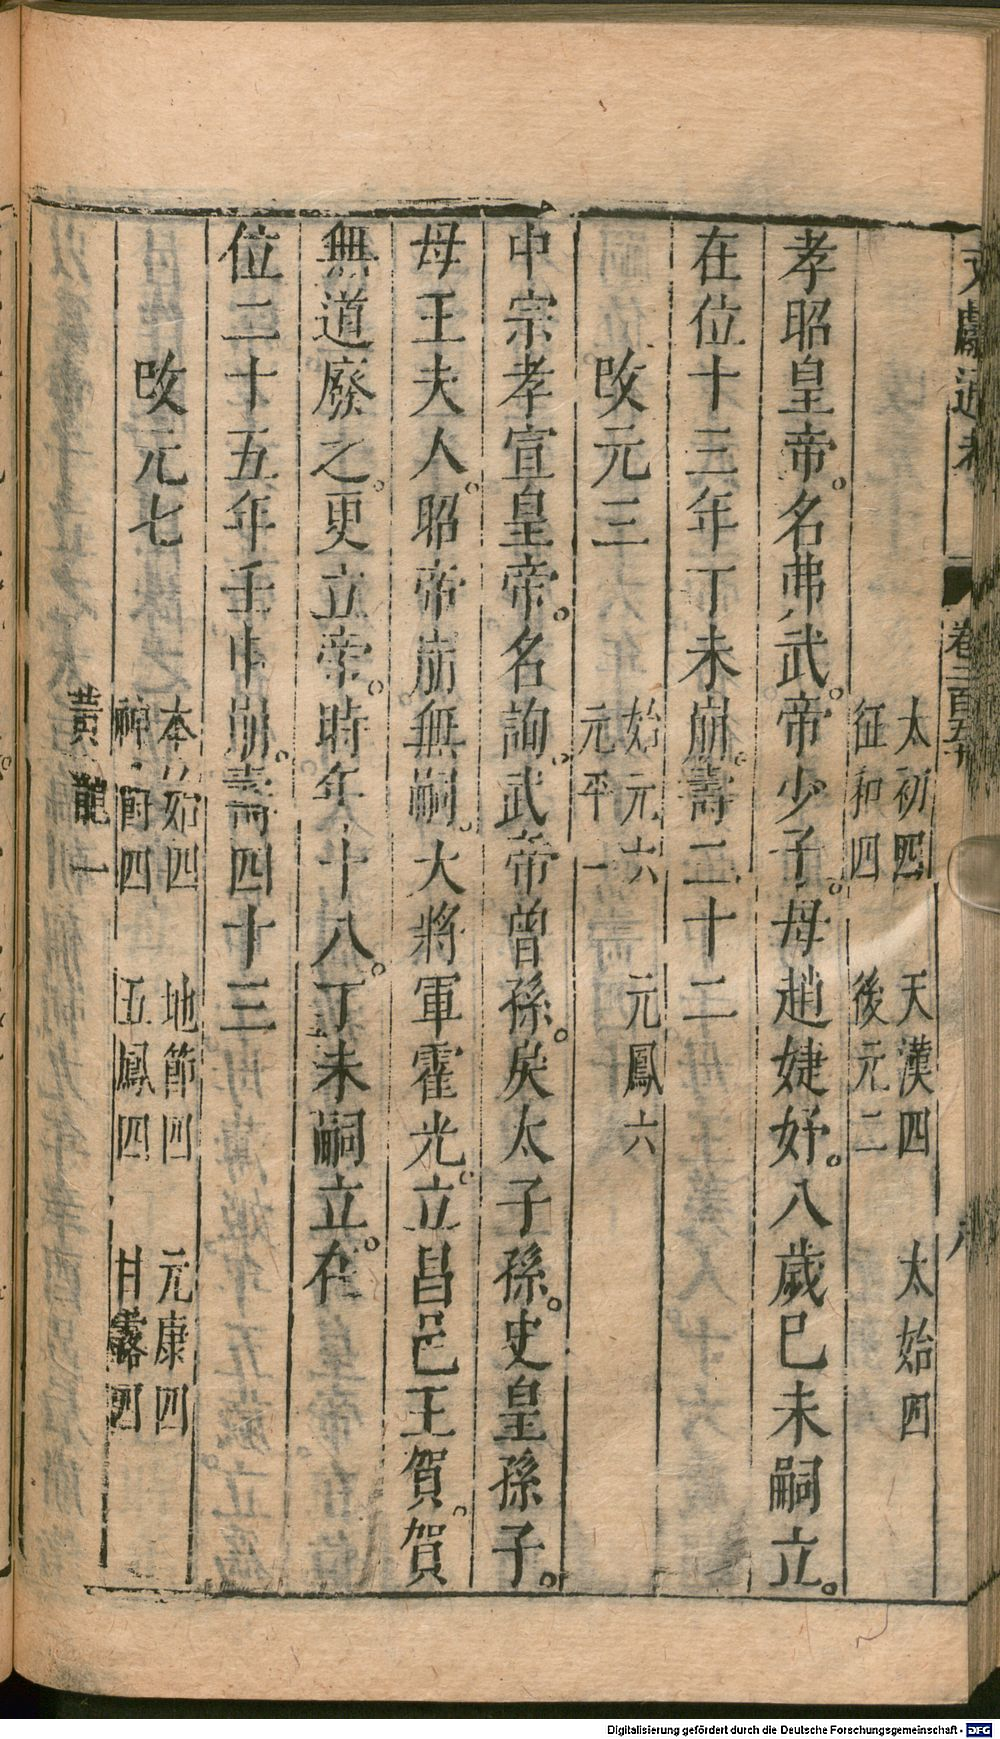 文獻通考 卷二百五十 八
太初四 天漢四 太始四
征和四 後元二
孝昭皇帝。名弗武。帝少子。母趙婕妤。八歲巳未嗣立。
在位十三年丁未崩。壽二十二
改元三 始元六 元鳳六
元平一
中宗孝宣皇帝。名詢。武帝曾孫。戾太子孫。史皇孫子。
母王夫人。昭帝崩無嗣。大將軍霍光。立昌邑王賀。賀
無道廢之。更立帝。時年十八。丁未嗣立。在
位二十五年壬申崩。壽四十三
改元七 本始四 地節四 元康四
神爵四 五鳳四 甘露四
黃龍一
Digitalisierung gefördert durch die Deutsche Forschungsgemeinschaft - DFG